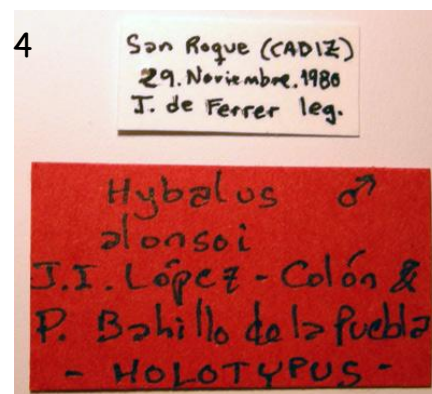 4
San Roque (CADIZ)
29. Noviembre. 1980
J. de Ferrer leg.
Hybalus ♂
alonsoi
J. I. López - Colón &
P. Bahillo de la Puebla
- HOLOTYPUS -